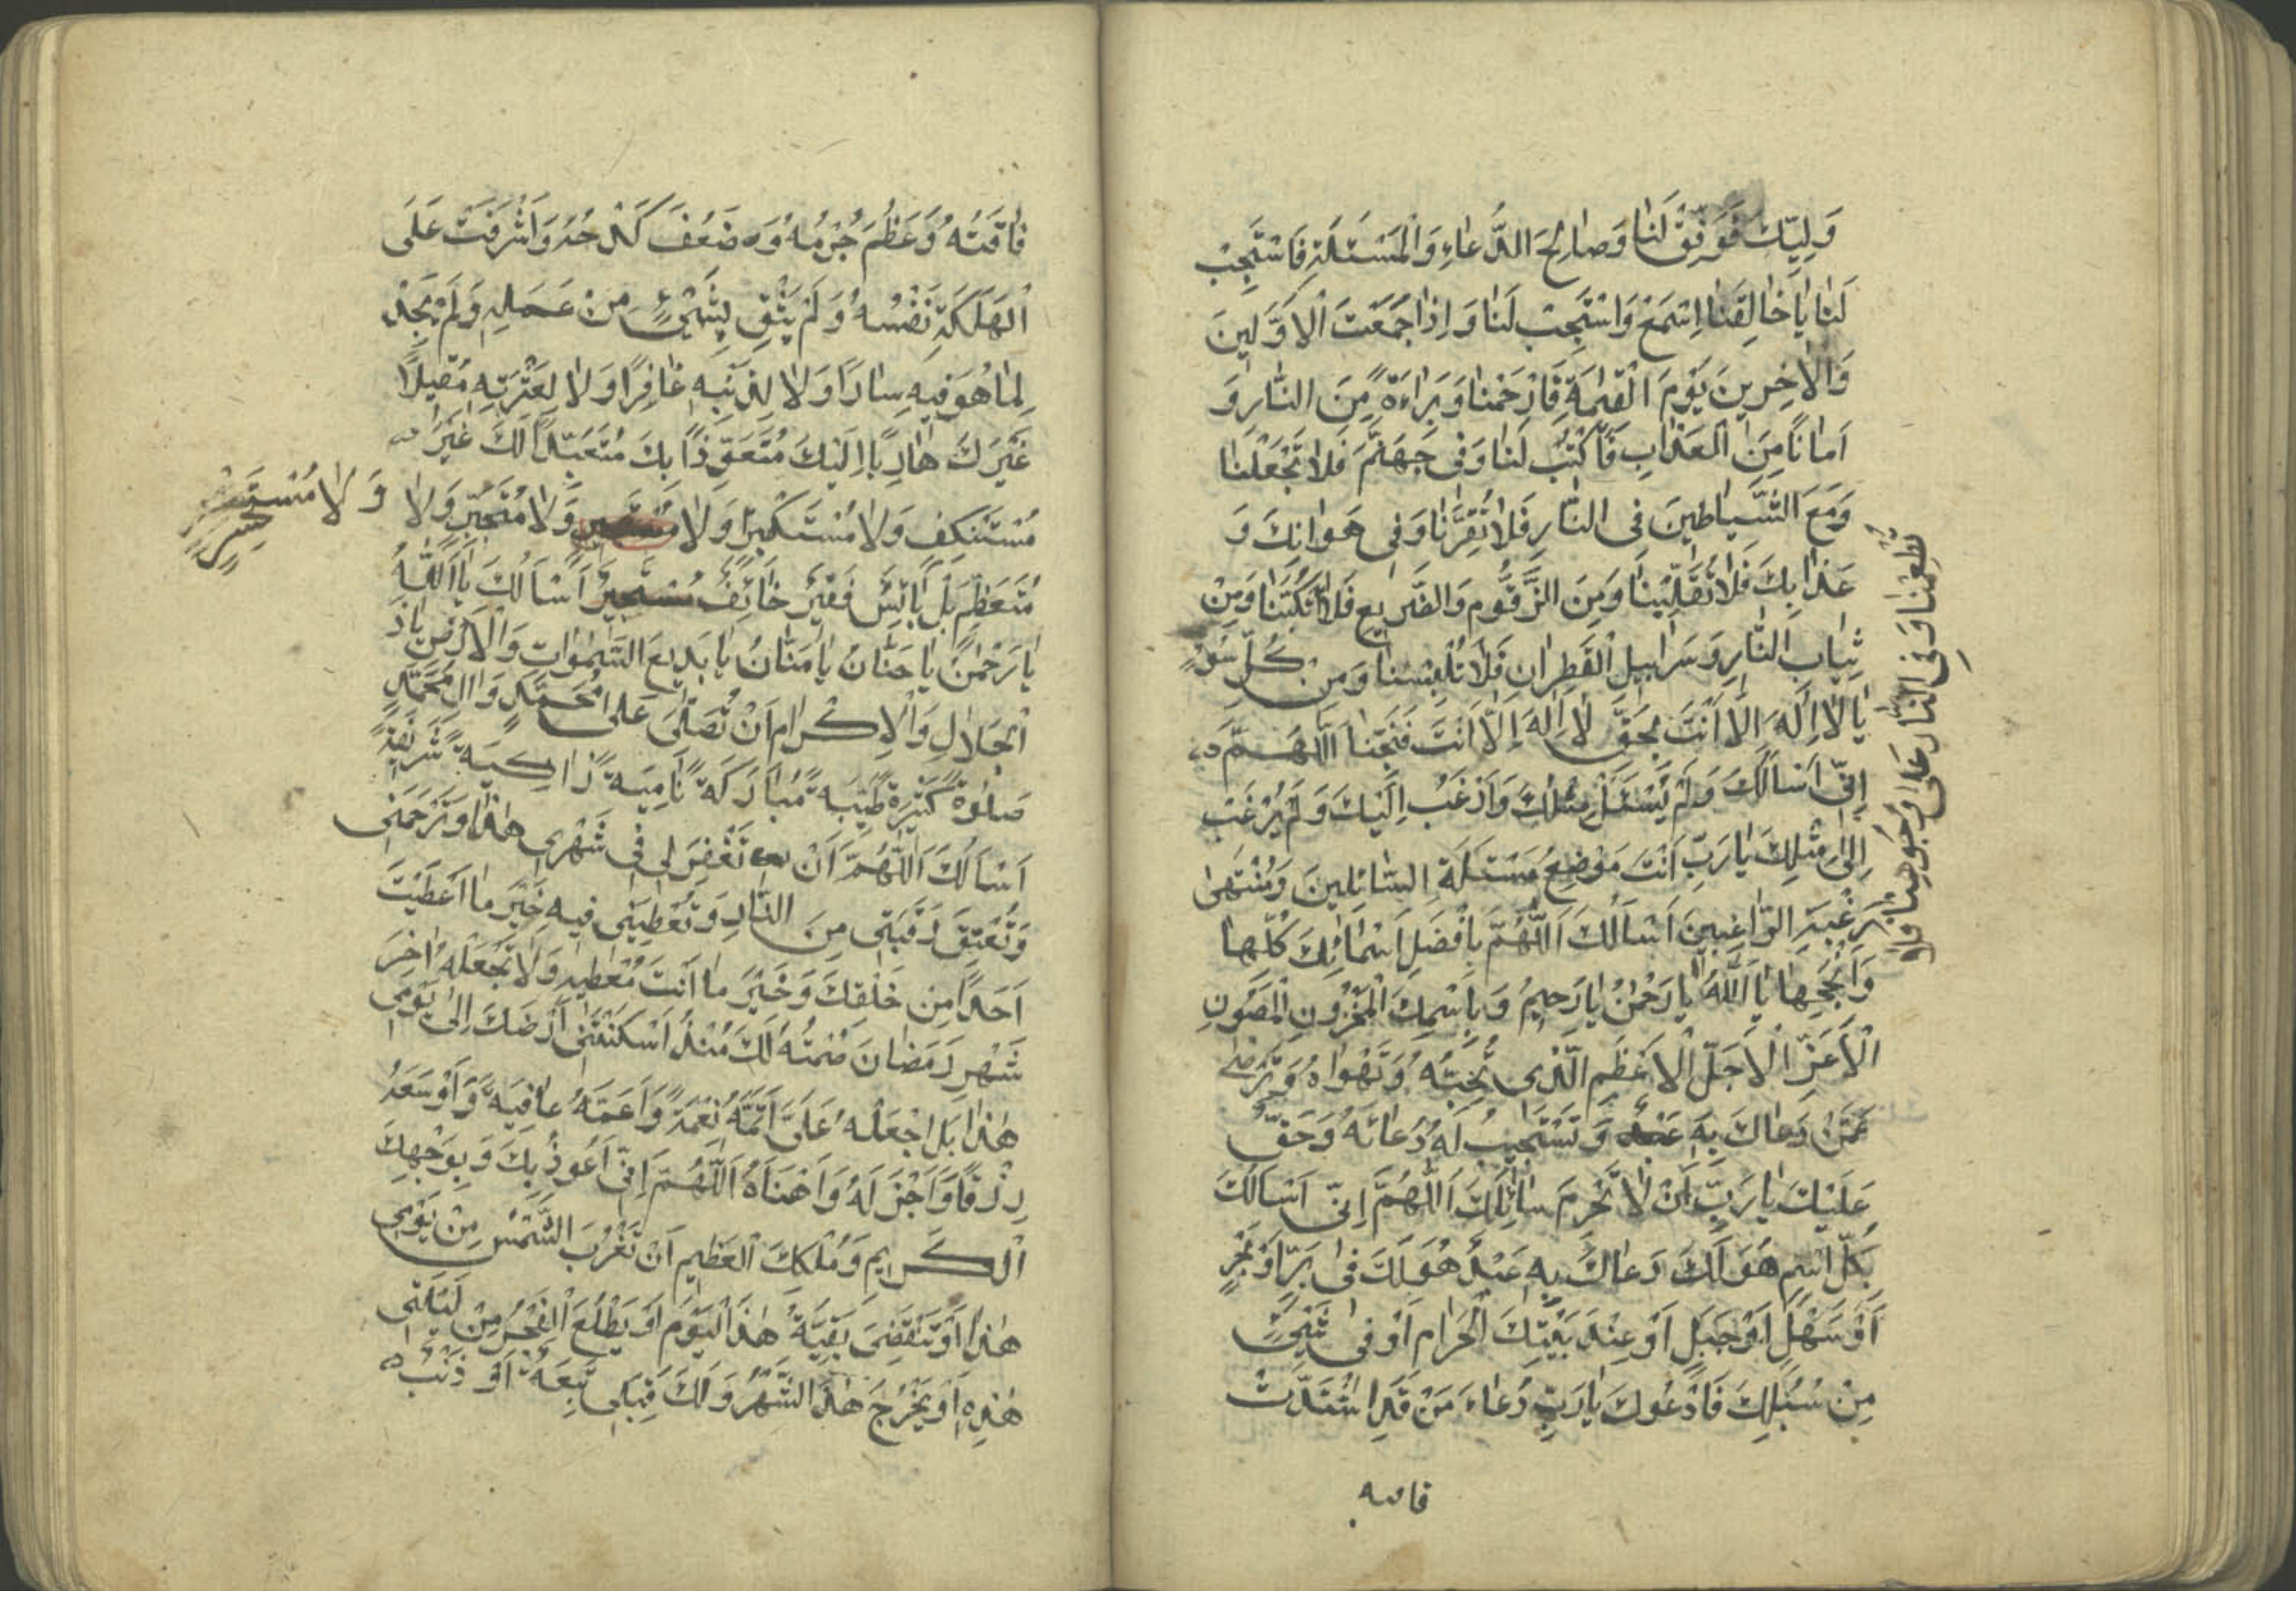 وَلِيّكَ فَوَفِّقْ لَنٰا وَصٰالِحَ الدُّعٰاءِ وَالْمَسْئَلَةِ فَاسْتَجِبْ
لَنٰا يٰا خٰالِقَنٰا اِسْمَعْ وَاسْتَجِبْ لَنٰا وَاِذٰا جَمَعْتَ الْاَوَّلينَ
وَالْاٰخِرينَ يَوْمَ الْقِيٰمَةِ فَارْحَمْنٰا وَبَرٰاءَةً مِنَ النّٰارِ وَ
اَمٰانًا مِنَ الْعَذٰابِ فَاكْتُبْ لَنٰا وَفى جَهَنَّمَ فَلٰا تَجْعَلْنٰا
وَمَعَ الشَّيٰاطينَ فى النّٰارِ فَلٰا تُقْرِنّٰا وَفى هَوٰانِكَ وَ
عَذٰابِكَ فَلٰا تُقَلِّبْنٰا وَمِنَ الزَّقُّومِ وَالضَّريعِ فَلٰا وَمِنْ
ثِيٰابِ النّٰارِ وَسَرٰابيلِ الْقَطِرٰانِ فَلٰا تُلْبِسْنٰا وَمِنْ كُلِّ سُوءٍ
يٰا لٰا اِلٰهَ اِلّٰا اَنْتَ بِحَقِّ لٰا اِلٰهَ اِلّٰا اَنْتَ فَنَجِّنٰا اَللّٰهُمَّ
اِنّى اَسْاَلُكَ وَلَمْ يُسْئَلْ مِثْلُكَ وَاَرْغَبُ اِلَيْكَ وَلَمْ يُرْغَبْ
اِلىٰ مِثْلِكَ يٰا رَبِّ اَنْتَ مَوْضِعُ مَسْئَلَةِ السّٰائِلينَ وَمُنْتَهىٰ
رَغْبَةِ الرّٰاغِبينَ اَسْاَلُكَ اَللّٰهُمَّ بِاَفْضَلِ اَسْمٰائِكَ كُلِّهٰا
وَاَنْجَحِهٰا يٰا اَللّٰهُ يٰا رَحْمٰنُ يٰا رَحيمُ وَبِاسْمِكَ الْمَخْزُونِ الْمَصُونِ
الْاَعَزِّ الْاَجَلِّ الْاَعْظَمِ الَّذى تُحِبُّهُ وَتَهْوٰاهُ وَتَرْضىٰ
عَمَّنْ دَعٰاكَ بِهِ وَتَسْتَجيبُ لَهُ دُعٰائَهُ وَحَقٌّ
عَلَيْكَ يٰا رَبِّ اَنْ لٰا تَحْرِمَ سٰائِلَكَ اَللّٰهُمَّ اِنّى اَسْاَلُكَ
بِكُلِّ اسْمٍ هُوَ لَكَ دَعٰاكَ بِهِ عَبْدٌ هُوَ لَكَ فى بَرٍّ اَوْ بَحْرٍ
اَوْ سَهْلٍ اَوْ جَبَلٍ اَوْ عِنْدَ بَيْتِكَ الْحَرٰامِ اَوْ فى شَىْءٍ
مِنْ سُبُلِكَ فَاَدْعُوكَ يٰا رَبِّ دُعٰاءَ مَنْ قَدِ اشْتَدَّتْ
فاقته
تُطْعِمْنٰا وَفِى النّٰارِ عَلىٰ وُجُوهِنٰا فَلٰا
فٰاقَتُهُ وَعَظُمَ جُرْمُهُ وَضَعُفَ كَدْحُهُ وَاَشْرَفَتْ عَلَى
الْهَلَكَةِ نَفْسُهُ وَلَمْ يَثِقْ بِشَىْءٍ مِنْ عَمَلِهِ وَلَمْ يَجِدْ
لِمٰا هُوَ فيهِ سٰادًّا وَلٰا لِذَنْبِهِ غٰافِرًا وَلٰا لِعَثْرَتِهِ مُقيلًا
غَيْرَكَ هٰارِبًا اِلَيْكَ مُتَعَوِّذًا بِكَ مُتَعَبِّدًا لَكَ غَيْرَ
مُسْتَنْكِفٍ وَلٰا مُسْتَكْبِرًا وَلٰا وَلٰا مُتَجَبِّرٍ وَلٰا
وَلٰا مُسْتَحْسِرٍ
مُتَعَظِّمٍ بَلْ بٰائِسٌ فَقيرٌ خٰائِفٌ مُسْتَجيرٌ اَسْاَلُكَ يٰا اَللّٰهُ
يٰا رَحْمٰنُ يٰا حَنّٰانُ يٰا مَنّٰانُ يٰا بَديعَ السَّمٰوٰاتِ وَالْاَرْضِ يٰا ذَ
الْجَلٰالِ وَالْاِكْرٰامِ اَنْ تُصَلِّىَ عَلىٰ مُحَمَّدٍ وَاٰلِ مُحَمَّدٍ
صَلٰوةً كَثيرَةً طَيِّبَةً مُبٰارَكَةً نٰامِيَةً زٰاكِيَةً شَريفَةً
اَسْاَلُكَ اَللّٰهُمَّ اَنْ تَغْفِرَ لى فى شَهْرى هٰذٰا وَتَرْحَمَنى
وَتُعْتِقَ رَقَبَتى مِنَ النّٰارِ وَتُعْطِيَنى فيهِ خَيْرَ مٰا اَعْطَيْتَ
اَحَدًا مِنْ خَلْقِكَ وَخَيْرَ مٰا اَنْتَ مُعْطيهِ وَلٰا تَجْعَلْهُ اٰخِرَ
شَهْرِ رَمَضٰانَ صُمْتُهُ لَكَ مُنْذُ اَسْكَنْتَنى اَرْضَكَ اِلىٰ يَوْمى
هٰذٰا بَلِ اجْعَلْهُ عَلَىَّ اَتَمَّهُ نِعْمَةً وَاَعَمَّهُ عٰافِيَةً وَاَوْسَعَهُ
رِزْقًا وَاَجْزَلَهُ وَاَهْنَاَهُ اَللّٰهُمَّ اِنّى اَعُوذُ بِكَ وَبِوَجْهِكَ
الْكَريمِ وَمُلْكِكَ الْعَظيمِ اَنْ تَغْرُبَ الشَّمْسُ مِنْ يَوْمى
هٰذٰا اَوْ يَنْقَضِىَ بَقِيَّةُ هٰذَا الْيَوْمِ اَوْ يَطْلُعَ الْفَجْرُ مِنْ لَيْلَتى
هٰذِهِ اَوْ يَخْرُجَ هٰذَا الشَّهْرُ وَلَكَ قِبَلى تَبِعَةٌ اَوْ ذَنْبٌ